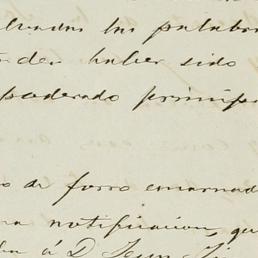 las palabra
der haber sido
poderado princip
o de forro encarnad
na notificacion, qu
á D. Juan